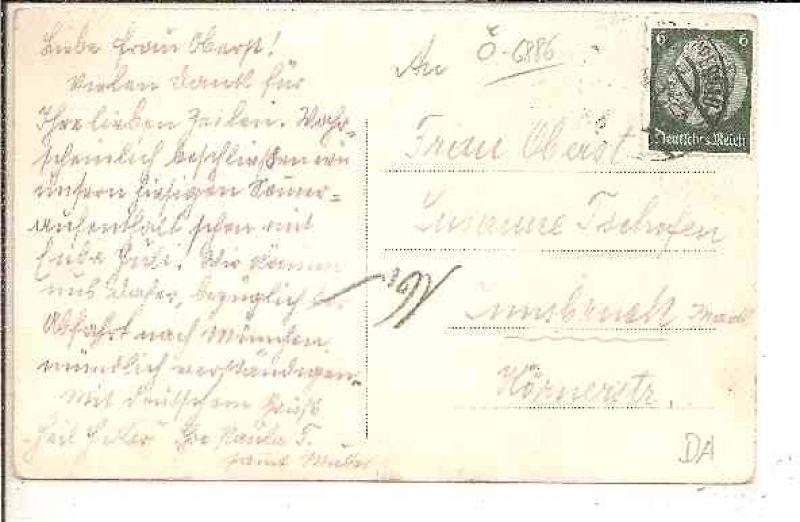 Liebe Frau Oberst!
Vielen Dank für
Ihre lieben Zeilen. Wahr-
scheinlich beschließen wir
unsern hiesigen Somer-
aufenthalt schon mit
Ende Juli! Wir können
uns daher, bezüglich der
Abfahrt nach München
mündlich verständigen.
Mit deutschem Gruß
Heil Hitler Ihre Paula T.
samt Mutter
An
Ö-6886
Frau Oberst
Susanne Tschofen
Innsbruck
Körnerstr.
DA
6 6
Deutsches Reich